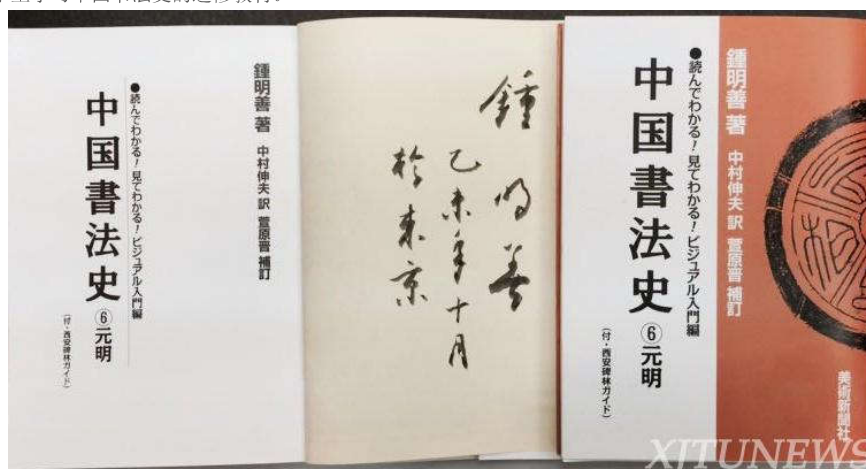 鍾明善 著 中村伸夫 訳 菅原晋 補訂
●読んでわかる！見てわかる！ビジュアル入門編
中国書法史⑥元明
（付・西安碑林ガイド）
鍾明善
乙未年十月
於東京
鍾明善 著 中村伸夫 訳 菅原晋 補訂
●読んでわかる！見てわかる！ビジュアル入門編
中国書法史⑥元明
（付・西安碑林ガイド）
美術新聞社
XITUNEWS